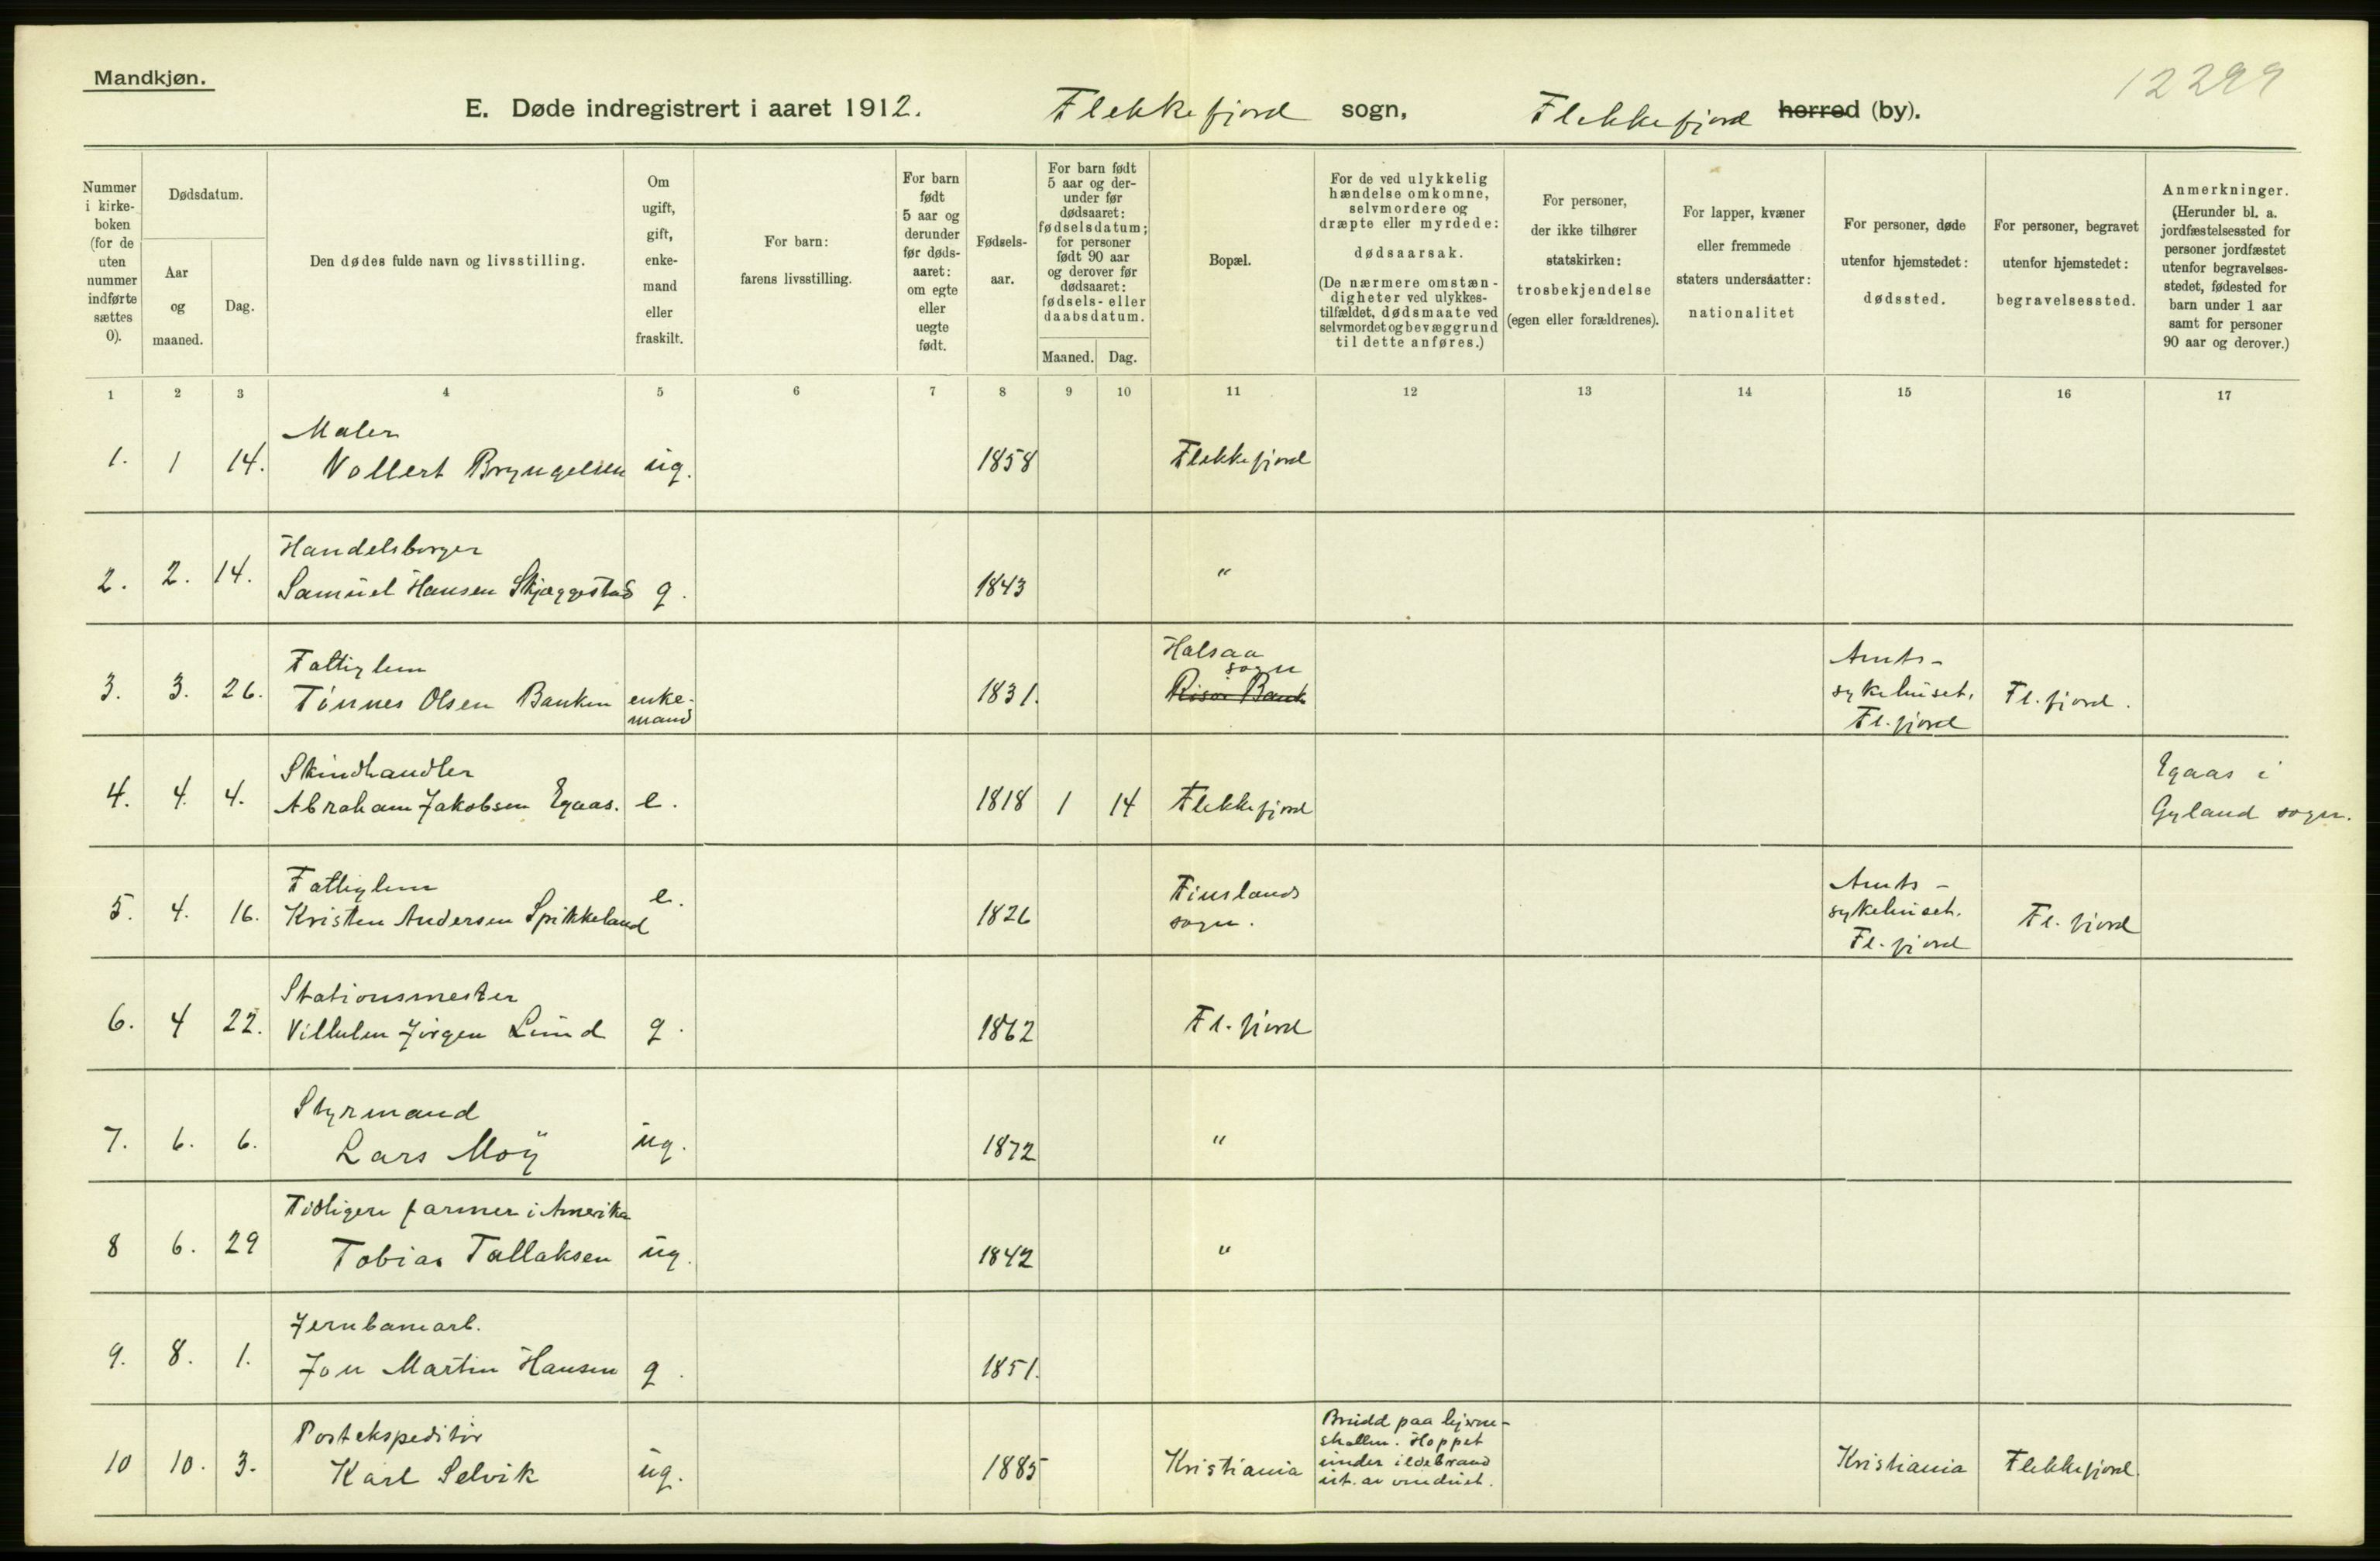 Mandkjøn.
12299
E. Døde indregistrert i aaret 1912. Flekkefjord sogn, Flekkefjord herred (by).
Nummer i kirke-boken (for de uten nummer indførte sættes 0).
Dødsdatum.
Aar og maaned.
Dag.
Den dødes fulde navn og livsstilling.
Om ugift, gift, enke-mand eller fraskilt.
For barn: farens livsstilling.
For barn født 5 aar og derunder før døds-aaret: om egte eller uegte født.
Fødsels-aar.
For barn født 5 aar og der-under før dødsaaret: fødselsdatum; for personer født 90 aar og derover før dødsaaret: fødsels- eller daabsdatum.
Maaned. Dag.
Bopæl.
For de ved ulykkelig hændelse omkomne, selvmordere og dræpte eller myrdede: dødsaarsak.
(De nærmere omstæn-digheter ved ulykkes-tilfældet, dødsmaate ved selvmordet og bevæggrund til dette anføres.)
For personer, der ikke tilhører statskirken: trosbekjendelse (egen eller forældrenes).
For lapper, kvæner eller fremmede staters undersåatter: nationalitet
For personer, døde utenfor hjemstedet: dødssted.
For personer, begravet utenfor hjemstedet: begravelsessted.
Anmerkninger.
(Herunder bl. a. jordfæstelsessted for personer jordfæstet utenfor begravelses-stedet, fødested for barn under 1 aar samt for personer 90 aar og derover.)
1 2 3 4 5 6 7 8 9 10 11 12 13 14 15 16 17
Maler
1. 1 14. Vollert Bryngelsen ug. 1858 Flekkefjord
Handelsborger
2. 2. 14. Samuel Hansen Skjæggestad g. 1843 "
Fattiglem Halsaa sogn Amts-
3. 3. 26. Tönnes Olsen Banken enke-mand 1831. Risør Bank sykehuset, Fl.fjord Fl.fjord.
Skindhandler Egaas i
4. 4. 4. Abraham Jakobsen Egaas. e. 1818 1 14 Flekkefjord Gyland sogn.
Fattiglem Finslands Amts-
5. 4. 16. Kristen Andersen Spikkeland e. 1826 sogn. sykehuset. Fl.fjord Fl.fjord
Stationsmester
6. 4 22. Vilhelm Jørgen Lund g. 1862 Fl.fjord
Styrmand
7. 6. 6. Lars Moÿ ug. 1872 "
Tidligere farmer i Amerika
8 6. 29 Tobias Tallaksen ug. 1842 "
Jernbanearb.
9. 8. 1. Jon Martin Hansen g. 1851.
Postekspeditør Brudd paa hjerne-
skallen. Hoppet
10 10. 3. Karl Selvik ug. 1885 Kristiania under ildebrand Kristiania Flekkefjord.
ut av vinduet.